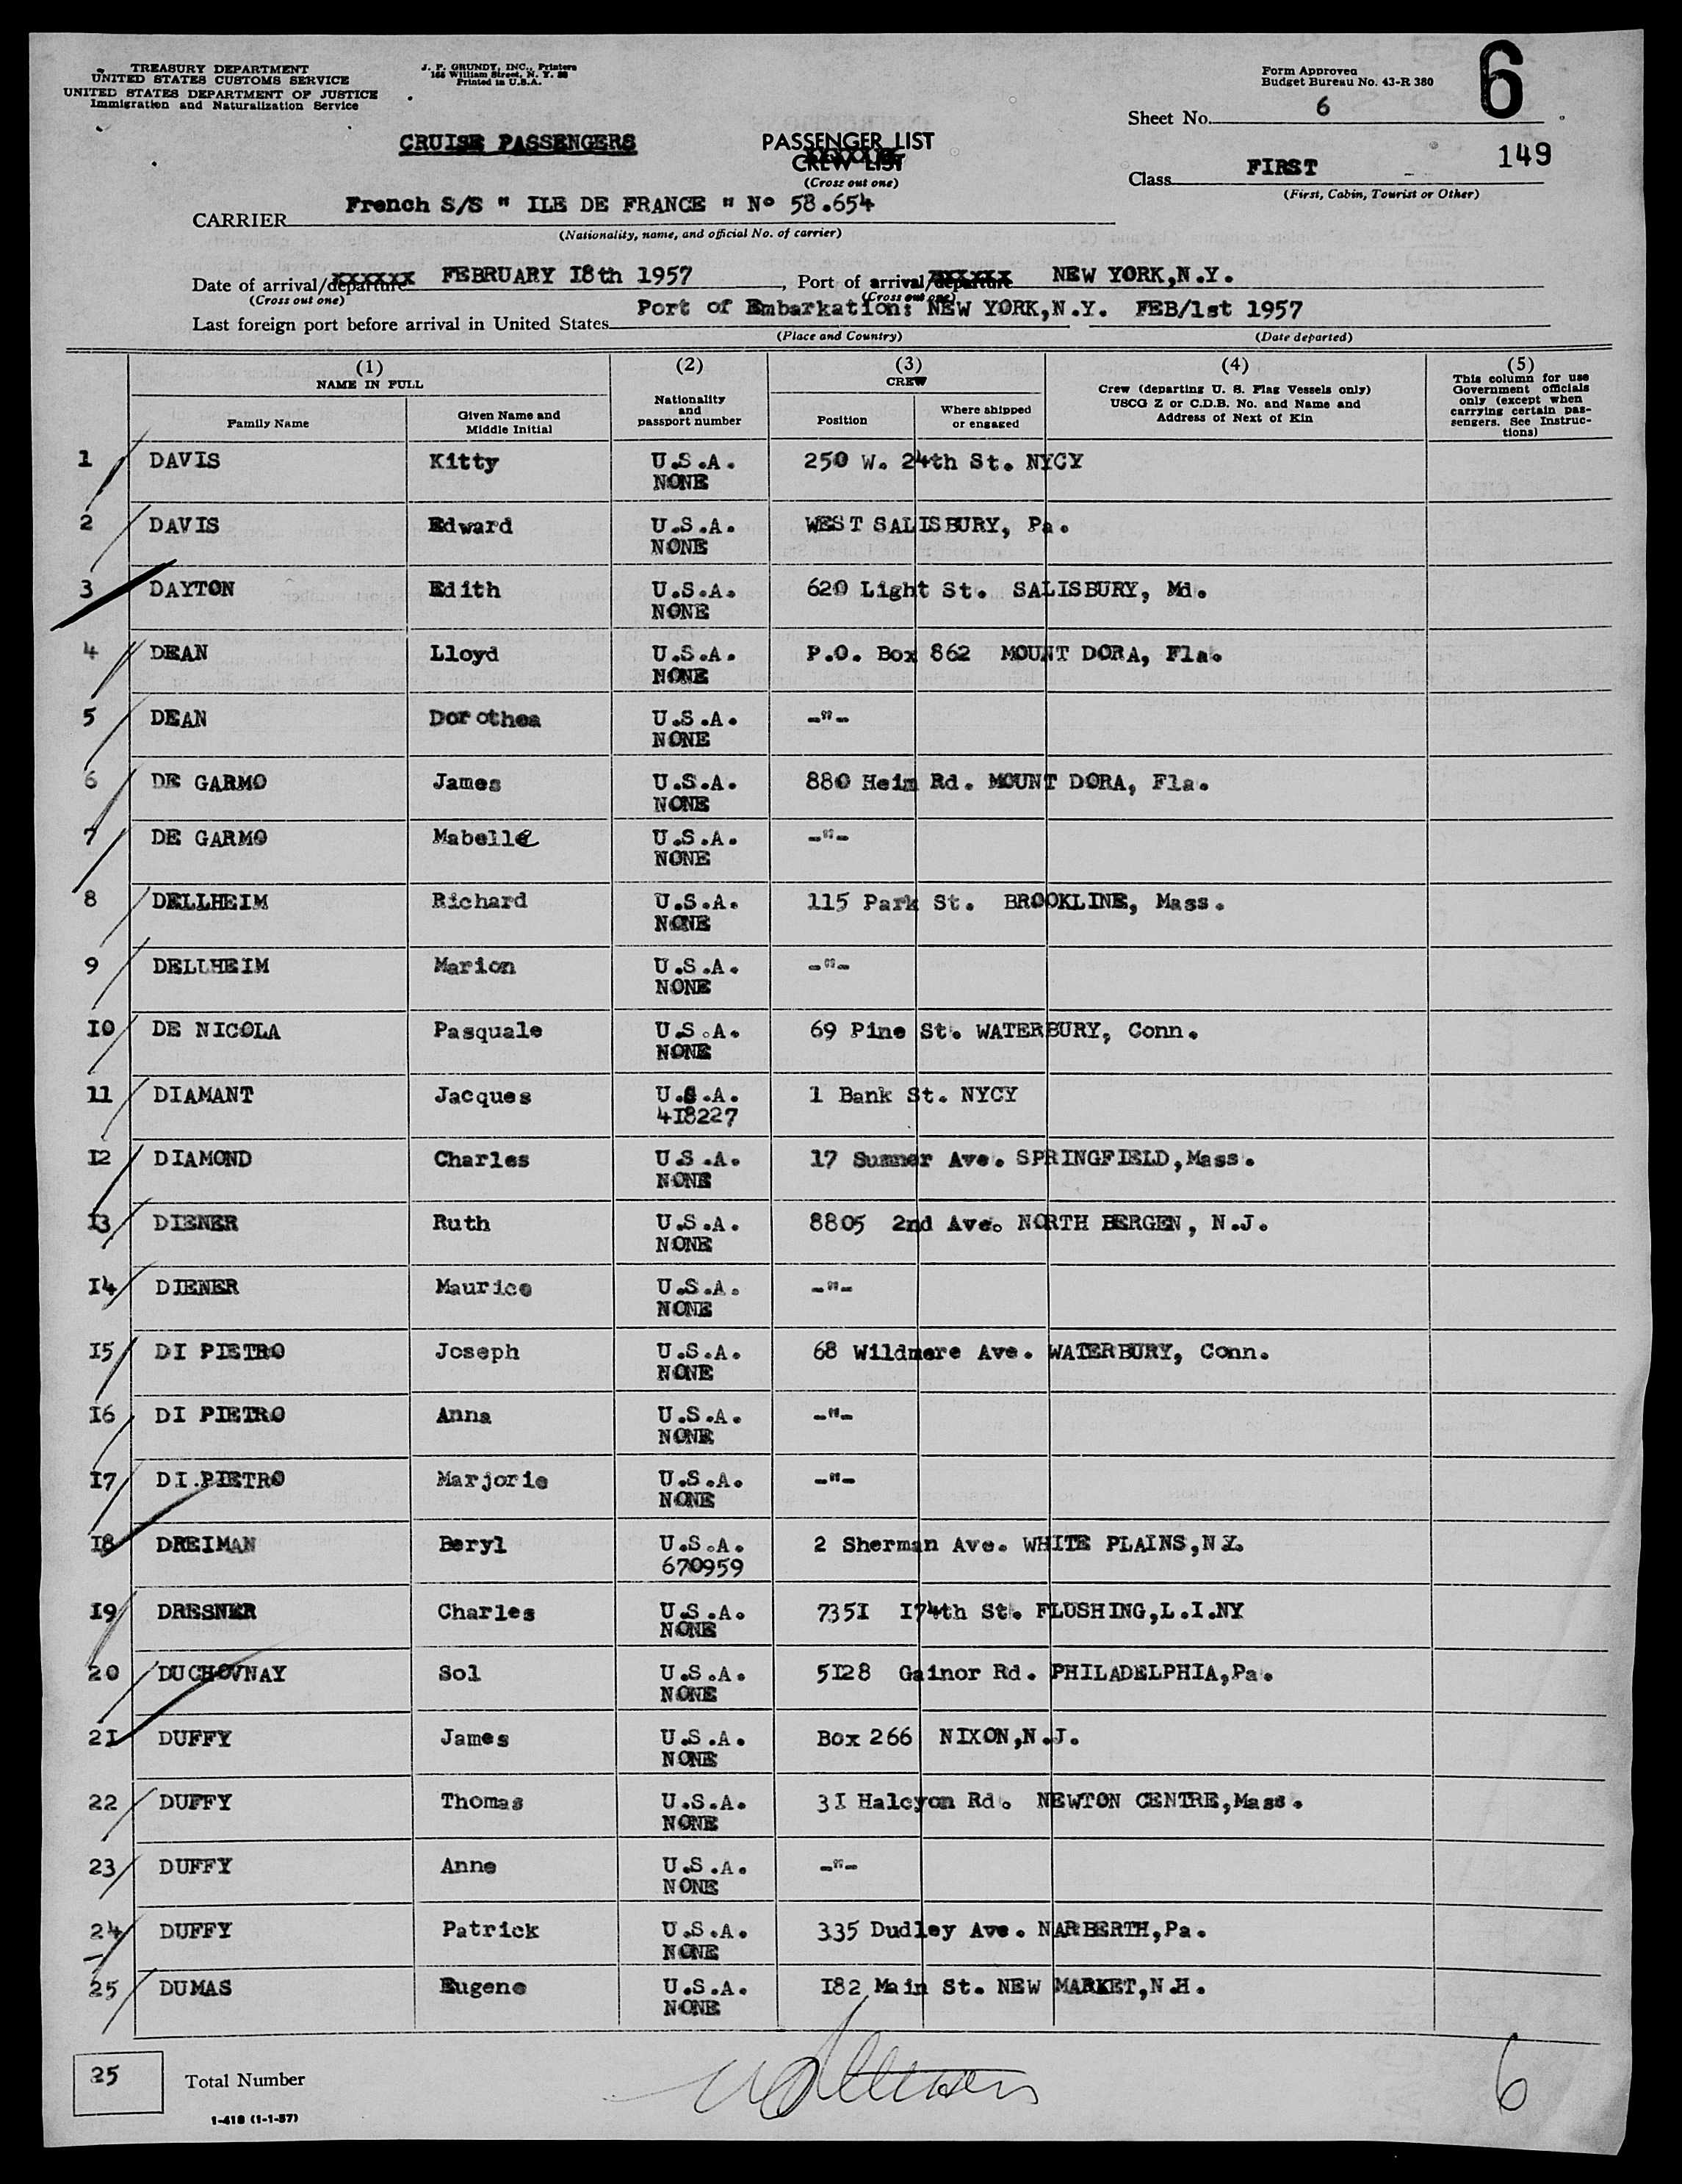 TREASURY DEPARTMENT
UNITED STATES CUSTOMS SERVICE
UNITED STATES DEPARTMENT OF JUSTICE
Immigration and Naturalization Service
J. P. GRUNDY, INC., Printers
Printed in U.S.A.
Form Approved
Budget Bureau No. 43-R 380
6
Sheet No. 6
CRUISE PASSENGERS
PASSENGER LIST
CREW LIST
(Cross out one)
149
Class FIRST
(First, Cabin, Tourist or Other)
CARRIER French S/S " ILE DE FRANCE " No 58.654
(Nationality, name, and official No. of carrier)
Date of arrival/departure FEBRUARY I8th 1957, Port of arrival/departure NEW YORK,N.Y.
(Cross out one) (Cross out one)
Port of Embarkation: NEW YORK,N.Y. FEB/1st 1957
Last foreign port before arrival in United States
(Place and Country) (Date departed)
(1) (2) (3) (4) (5)
NAME IN FULL
Family Name
Given Name and Middle Initial
Nationality and passport number
CREW
Position
Where shipped or engaged
Crew (departing U. S. Flag Vessels only)
USCG Z or C.D.B. No. and Name and
Address of Next of Kin
This column for use
Government officials
only (except when
carrying certain pas-
sengers. See Instruc-
tions)
1 DAVIS Kitty U.S.A. 250 W. 24th St. NYCY
NONE
2 DAVIS Edward U.S.A. WEST SALISBURY, Pa.
NONE
3 DAYTON Edith U.S.A. 620 Light St. SALISBURY, Md.
NONE
4 DEAN Lloyd U.S.A. P.O. Box 862 MOUNT DORA, Fla.
NONE
5 DEAN Dorothea U.S.A. -"-
NONE
6 DE GARMO James U.S.A. 880 Heim Rd. MOUNT DORA, Fla.
NONE
7 DE GARMO Mabelle U.S.A. -"-
NONE
8 DELLHEIM Richard U.S.A. 115 Park St. BROOKLINE, Mass.
NONE
9 DELLHEIM Marion U.S.A. -"-
NONE
I0 DE NICOLA Pasquale U.S.A. 69 Pine St. WATERBURY, Conn.
NONE
11 DIAMANT Jacques U.S.A. 1 Bank St. NYCY
4I8227
I2 DIAMOND Charles U.S.A. 17 Sumner Ave. SPRINGFIELD,Mass.
NONE
I3 DIENER Ruth U.S.A. 8805 2nd Ave. NORTH BERGEN, N.J.
NONE
I4 DIENER Maurice U.S.A. -"-
NONE
I5 DI PIETRO Joseph U.S.A. 68 Wildmere Ave. WATERBURY, Conn.
NONE
I6 DI PIETRO Anna U.S.A. -"-
NONE
I7 DI.PIETRO Marjorie U.S.A. -"-
NONE
I8 DREIMAN Beryl U.S.A. 2 Sherman Ave. WHITE PLAINS,NY.
670959
I9 DRESNER Charles U.S.A. 735I I74th St. FLUSHING,L.I.NY
NONE
20 DUCHOVNAY Sol U.S.A. 5I28 Gainor Rd. PHILADELPHIA,Pa.
NONE
2I DUFFY James U.S.A. Box 266 NIXON,N.J.
NONE
22 DUFFY Thomas U.S.A. 3I Halcyon Rd. NEWTON CENTRE,Mass.
NONE
23 DUFFY Anne U.S.A. -"-
NONE
24 DUFFY Patrick U.S.A. 335 Dudley Ave. NARBERTH,Pa.
NONE
25 DUMAS Eugene U.S.A. I82 Main St. NEW MARKET,N.H.
NONE
25 Total Number
6
1-418 (1-1-57)